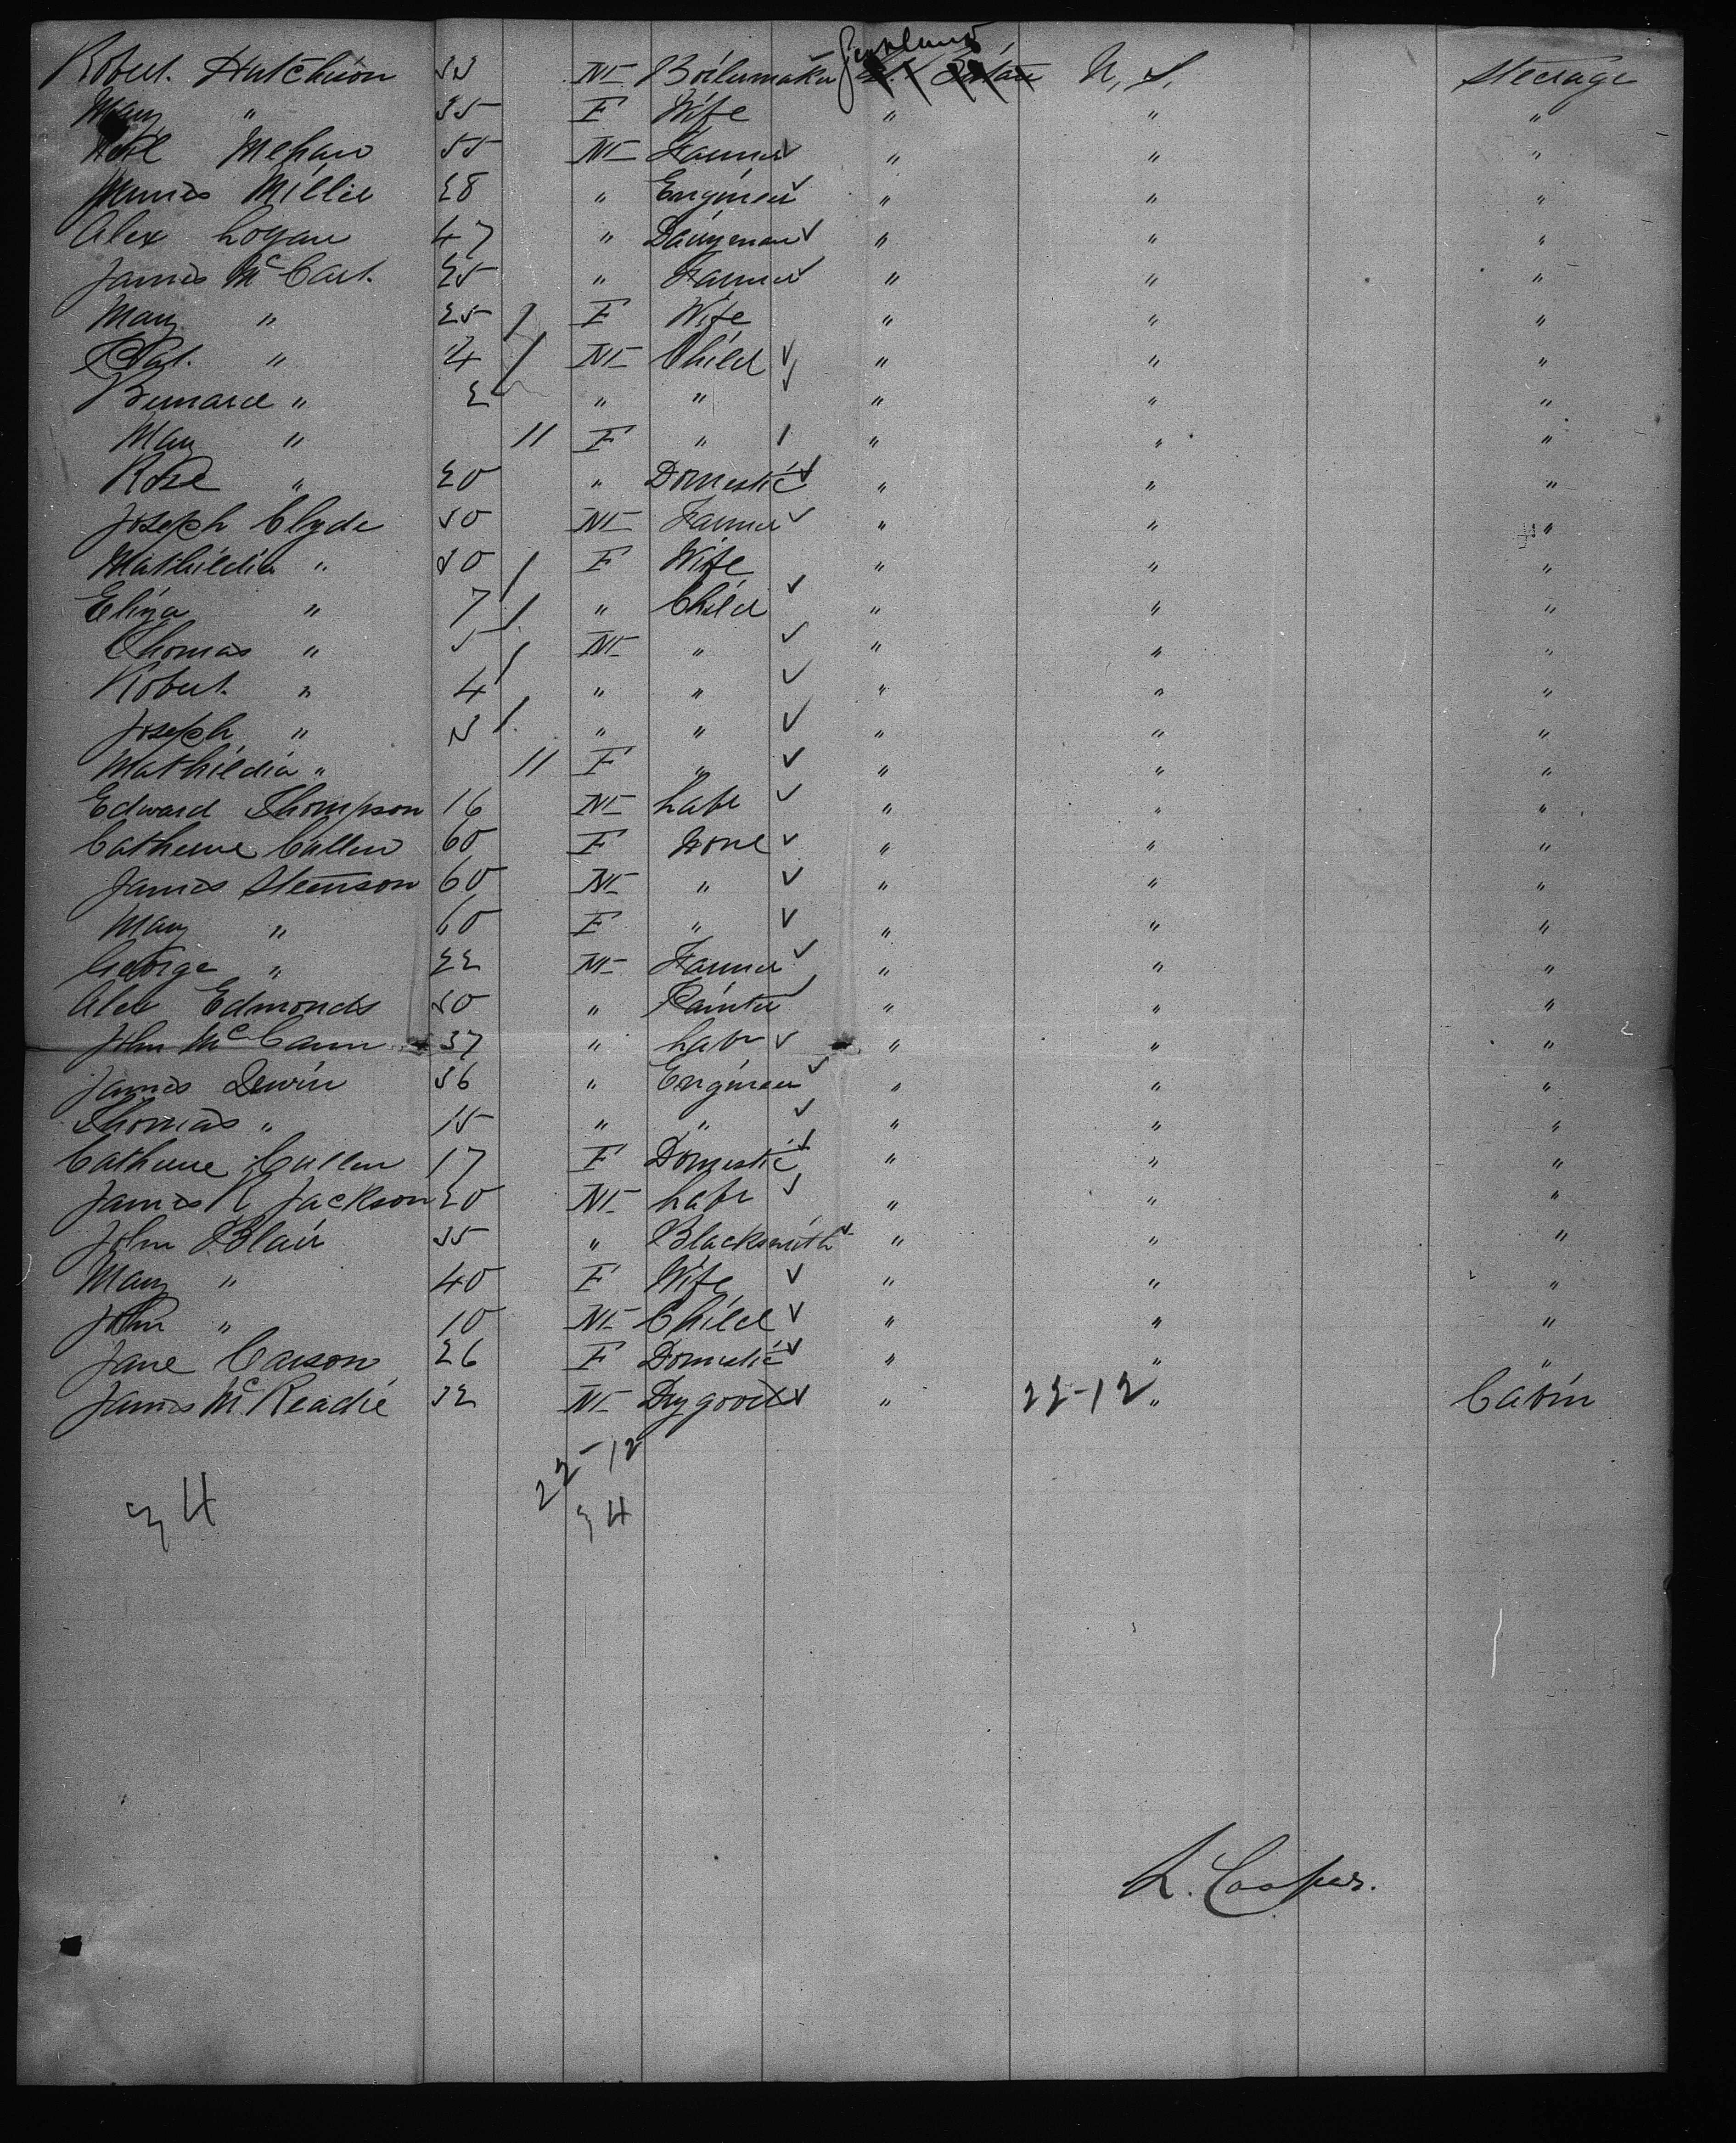 Scotland
Robert Hutchison 33 M Boilermaker U, S, Steerage
Mary " 35 F Wife " " "
Neil Mehan 55 M Farmer " " "
James Millie 28 " Engineer " " "
Alex Logan 47 " Dairyman " " "
James McCart 25 " Farmer " " "
Mary " 25 F Wife " " "
Pat. " 4 M Child " " "
Bernard " 2 " " " " "
Mary " 11 F " " " "
Rose " 20 " Domestic " " "
Joseph Clyde 30 M Farmer " " "
Mathildia " 30 F Wife " " "
Eliza " 7 " Child " " "
Thomas " 5 M " " " "
Robert " 4 " " " " "
Joseph " 3 " " " " "
Mathildia " 11 F " " " "
Edward Thompson 16 M Labr " " "
Catherine Cullen 60 F None " " "
James Stenson 60 M " " " "
Mary " 60 F " " " "
George " 22 M Farmer " " "
Alex Edmonds 50 " Painter " " "
John McCann 37 " Labr " " "
James Dewin 36 " Engineer " " "
Thomas " 15 " " " " "
Catherine Cullen 17 F Domestic " " "
James R Jackson 20 M Labr " " "
John Blair 35 " Blacksmith " " "
Mary " 40 F Wife " " "
John " 10 M Child " " "
Jane Carson 26 F Domestic " " "
James McReadie 32 M Dry goods " 22-12 " Cabin
22-12
34 34
L. Cooper.